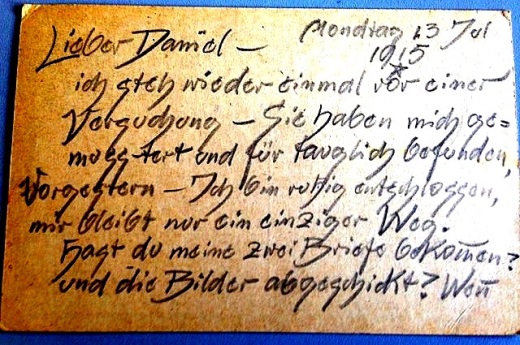 Lieber Daniel — Mondtag 13 Jul
1915
ich steh wieder einmal vor einer
Versuchung — Sie haben mich ge=
muss-tert und für tauglich befunden,
Vorgestern — Ich bin ruhig entschlossen,
mir bleibt nur ein einziger Weg.
Hast du meine zwei Briefe bekom̄en?
und die Bilder abgeschickt? Wen̄